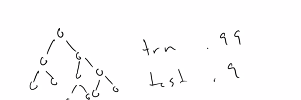 trn .99
test .9